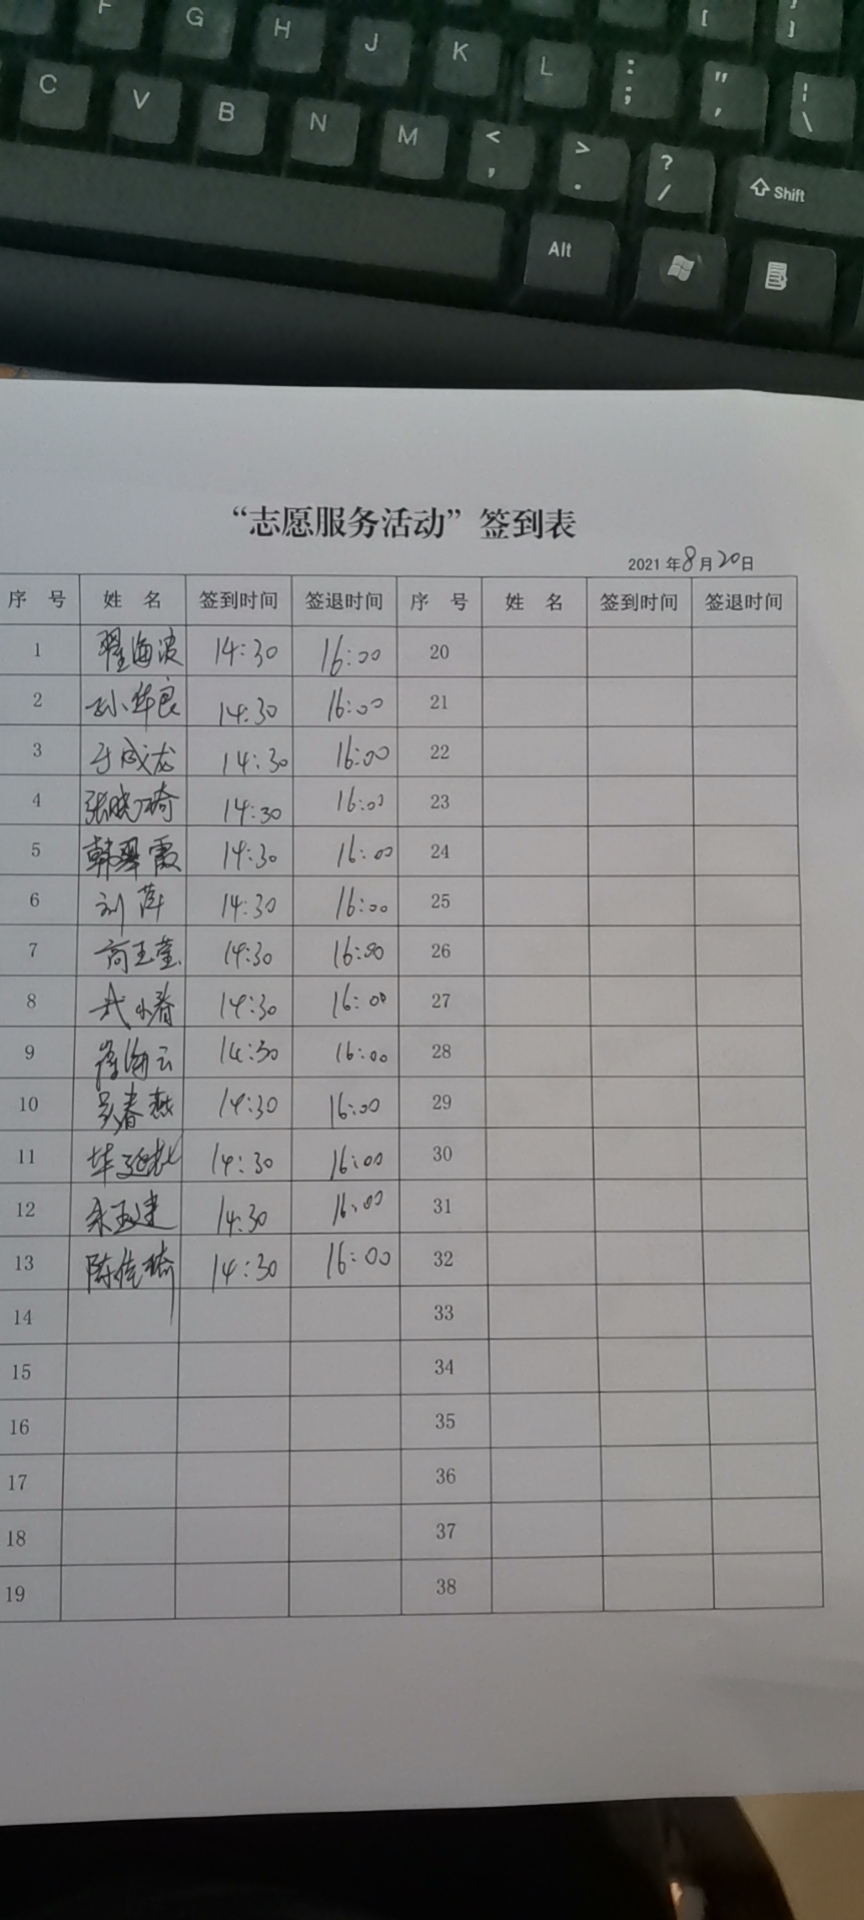 F G H J K L : ; " ' [ ]
C V B N M < , > . ? / | \
Alt Shift
“志愿服务活动”签到表
2021年8月20日
序 号 姓 名 签到时间 签退时间 序 号 姓 名 签到时间 签退时间
1 翟海波 14:30 16:00 20
2 孙华良 14:30 16:00 21
3 于成龙 14:30 16:00 22
4 张晓琦 14:30 16:00 23
5 韩翠霞 14:30 16:00 24
6 刘萍 14:30 16:00 25
7 高玉莹 14:30 16:00 26
8 武小春 14:30 16:00 27
9 海云 14:30 16:00 28
10 吴春燕 14:30 16:00 29
11 14:30 16:00 30
12 玉建 14:30 16:00 31
13 陈佳琦 14:30 16:00 32
14 33
15 34
16 35
17 36
18 37
19 38